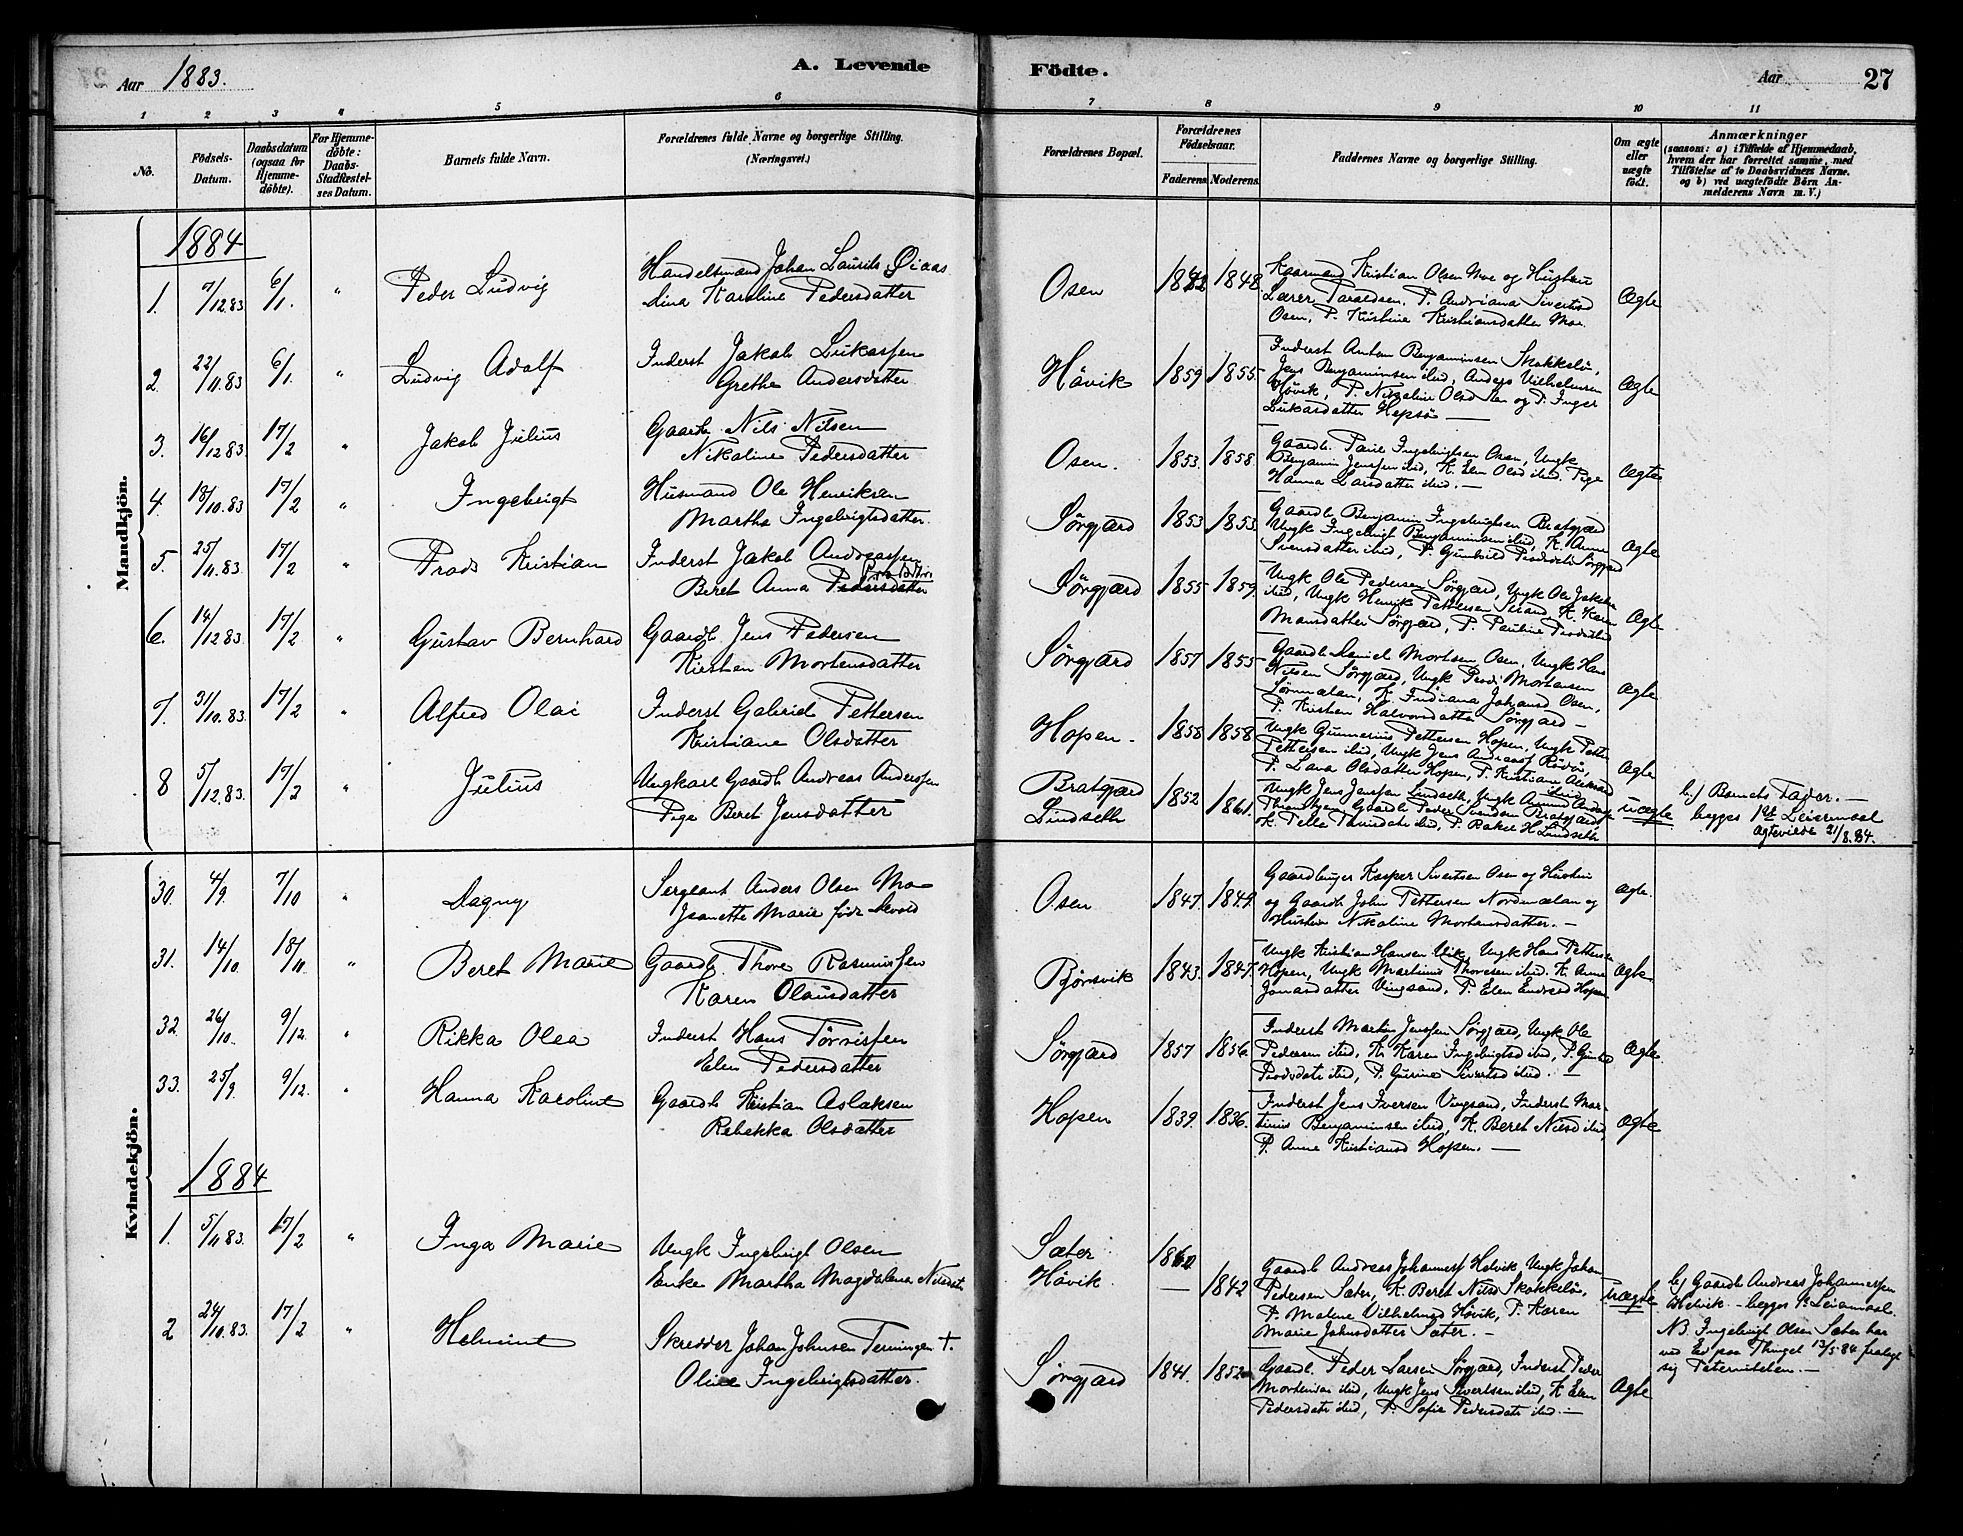 Aar 1883.
A. Levende
Födte.
Aar
27
1 2 3 4 5 6 7 8 9 10 11
No.
Födsels-Datum.
Daabsdatum (ogsaa for Hjemme-döbte).
For Hjemme-döbte: Daabs-Stadfæstel-ses Datum.
Barnets fulde Navn.
Forældrenes fulde Navne og borgerlige Stilling.
(Næringsvei.)
Forældrenes Bopæl.
Forældrenes Födselsaar.
Faderens. Moderens.
Faddernes Navne og borgerlige Stilling.
Om ægte eller uægte födt.
Anmærkninger
(saasom: a) i Tilfælde af Hjemmedaab,
hvem der har forrettet samme, med
Tilföielse af to Daabsvidners Navne.
og b) ved uægtefödte Börn An-
melderens Navn m. V.)
Mandkjön.
1884
1. 7/12.83 6/1. " Peder Ludvig
Handelsmand Johan Laurits Øiaas
Lina Karoline Pedersdatter
Osen 1848. Ægte
Kaarmand Kristian Olsen Moe og Hustru
Osen, P. Kristine Kristiansdatter Moe.
2. 22/11.83 6/1. " Ludvig Adolf
Inderst Jakob Lukassen
Grethe Andersdatter
Håvik 1859 1855. Ægte
Inderst Anton Benjaminsen Skokkelö,
Jens Benjaminsen ibid, Anders Vilhelmsen
Håvik, P. Nikoline Olsd ibd og P. Inger
Lukasdatter Hepsö —
3. 16/12 83 17/2 " Jakob Julius
Gaardb. Nils Nilsen
Nikoline Pedersdatter
Osen. 1853. 1858. Ægte
Benjamin Jenssen ibid, K. Elen Olsd ibid. Pige
Hanna Larsdatter ibid. —
4. 18/10.83 17/2 " Ingebrigt
Husmand Ole Henriksen
Martha Ingebrigtsdatter.
Sörgjærd 1853 1853. Ægte
Gaardb Benjamin Ingebrigtsen Bratgjærd
Ungk Ingebrigt Benjaminsen ibid, K. Anne
5. 25/11.83 17/2 " Prods Kristian
Inderst Jakob Andreassen
Beret Anna Pedersdatter
Sörgjærd 1855 1859. Ægte
Ungk Ole Pedersen Sörgjærd, Ungk Ole Jakobs
ibid, Ungk Henrik Pettersen Strand, K. Karen
Monsdatter Sörgjærd, P. Pauline Prodsd ibid
6. 14/12 83 17/2 " Gustav Bernhard
Gaardb. Jens Pedersen
Kirsten Mortensdatter
Sörgjærd 1857 1855 Ægte
Gaardb Daniel Mortsen Osen, Ungk Hans
Nilsen Sörgjærd, Ungk Prods Mortensen
Sörmælan, K. Indiana Johansd Osen,
P. Kristen Halvorsdatter Sörgjærd —
7. 31/10.83. 17/2 " Alfred Olai
Inderst Gabriel Pettersen
Kristiane Olsdatter
Hopen. 1858 1858 Ægte
Ungk Gunnerius Pettersen Hopen, Ungk Petter
Pettersen ibid, Ungk Jens Andreass Rödö,
P. Lava Olsdatter Hopen, P. Kristiane
8 5/12.83. 17/2 " Julius
Ungkarl Gaardb Andreas Anderssen
Pige Beret Jensdatter
Bratgjærd
Lindseth 1852 1861. uægte
Ungk Jens Jenssen Lindseth, Ungk
Gaardb Peder Svendsen Bratgjærd,
ibid, P. Rakel H. Lindseth
b.) Barnets Fader. —
begges 1ste Leiermaal
Ægteviede 21/8.84.
Kvindekjön.
30. 4/9. 7/10 " Dagny
Sergeant Anders Olsen Mo
Jeanette Marie föd Devold
Osen 1847. 1849. Ægte.
Gaardbruger Kasper Sivertsen Osen og Hustru
og Gaardb John Pettersen Nordmælan og
Hustru Nikoline Mortensdatter. —
31. 14/10. 18/11. " Beret Marie
Gaardb. Thore Rasmussen
Karen Olausdatter
Björsvik 1843. 1847. Ægte
Ungk Kristian Hansen Vik, Ungk Hans Pettersen
Hopen, Ungk Martinus Thoresen ibid. K. Anne
Jonasdatter Vingsand, P. Elen Endresd Hopen
32. 26/10. 9/12. " Rikka Olea
Inderst Hans Törrissen
Elen Pedersdatter
Sörgjærd 1857 1856 Ægte
Inderst Martin Jenssen Sörgjærd, Ungk Ole
Pedersen ibid, K. Karen Ingebrigtsd ibid,
Prodsdatt ibid, P. Gurine Sivertsd ibid. —
33. 25/9. 9/12. " Hanna Karoline
Gaardb Kristian Aslaksen
Rebekka Olsdatter
Hopen 1839. 1836. Ægte
Inderst Jens Iversen Vingsand, Inderst Mar-
tinus Benjaminsen ibid, K. Beret Nilsd ibid,
P. Anne Kristiansd Hopen. —
1884
1. 5/11 83. 17/2 " Inga Marie
Ungk Ingebrigt Olsen
Enke Martha Magdalena Nilsdat.
Sæter
Håvik. 1860 — 1842 Uægte
Gaardb Andreas Johanness Hovik, Ungk Johan
Pedersen Sæter, K. Beret Nilsd Skokkelö,
P. Malene Vilhelmsd Håvik, P. Karen
Marie Johnsdatter Sæter. —
b.) Gaardb Andreas Johannessen
Hovik — begges 1s Leiermaal.
NB. Ingebrigt Olsen Sæter har
ved Ed paa Thinget 13/5.84 fralagt
sig Paterniteten. —
2 24/10.83. 17/2 " Helmine
Skredder Johan Johnsen Terningen +.
Oline Ingebrigtsdatter.
Sörgjærd 1841. 1852 Ægte
Gaardb. Peder Larsen Sörgjærd, Inderst Peder
Mortensen ibid, Ungk Jens Sivertsen ibid, K. Elen
Pedersdatt ibid, P. Sofie Pedersdatt ibid. —